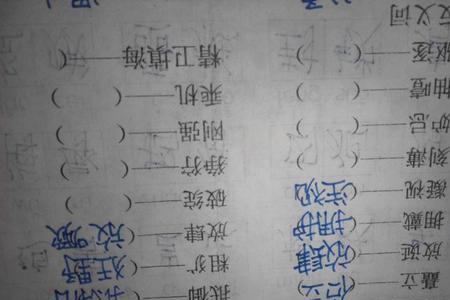 矗立——(伫立) 抵御——(
放诞——(放肆) 粗犷——(狂野
拥戴——(拥护) 放肆——(放
凝视——(注视) 破绽——( )
刻薄——( ) 狰狞——( )
妒忌——( ) 刚强——( )
抽噎——( ) 乘机——( )
驱逐——( ) 精卫填海——(
反义词